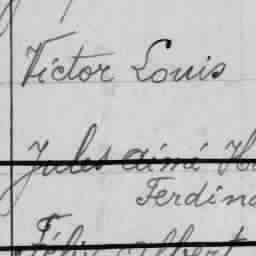 Victor Louis
Jules Aimé
Ferdin
Félix Albert